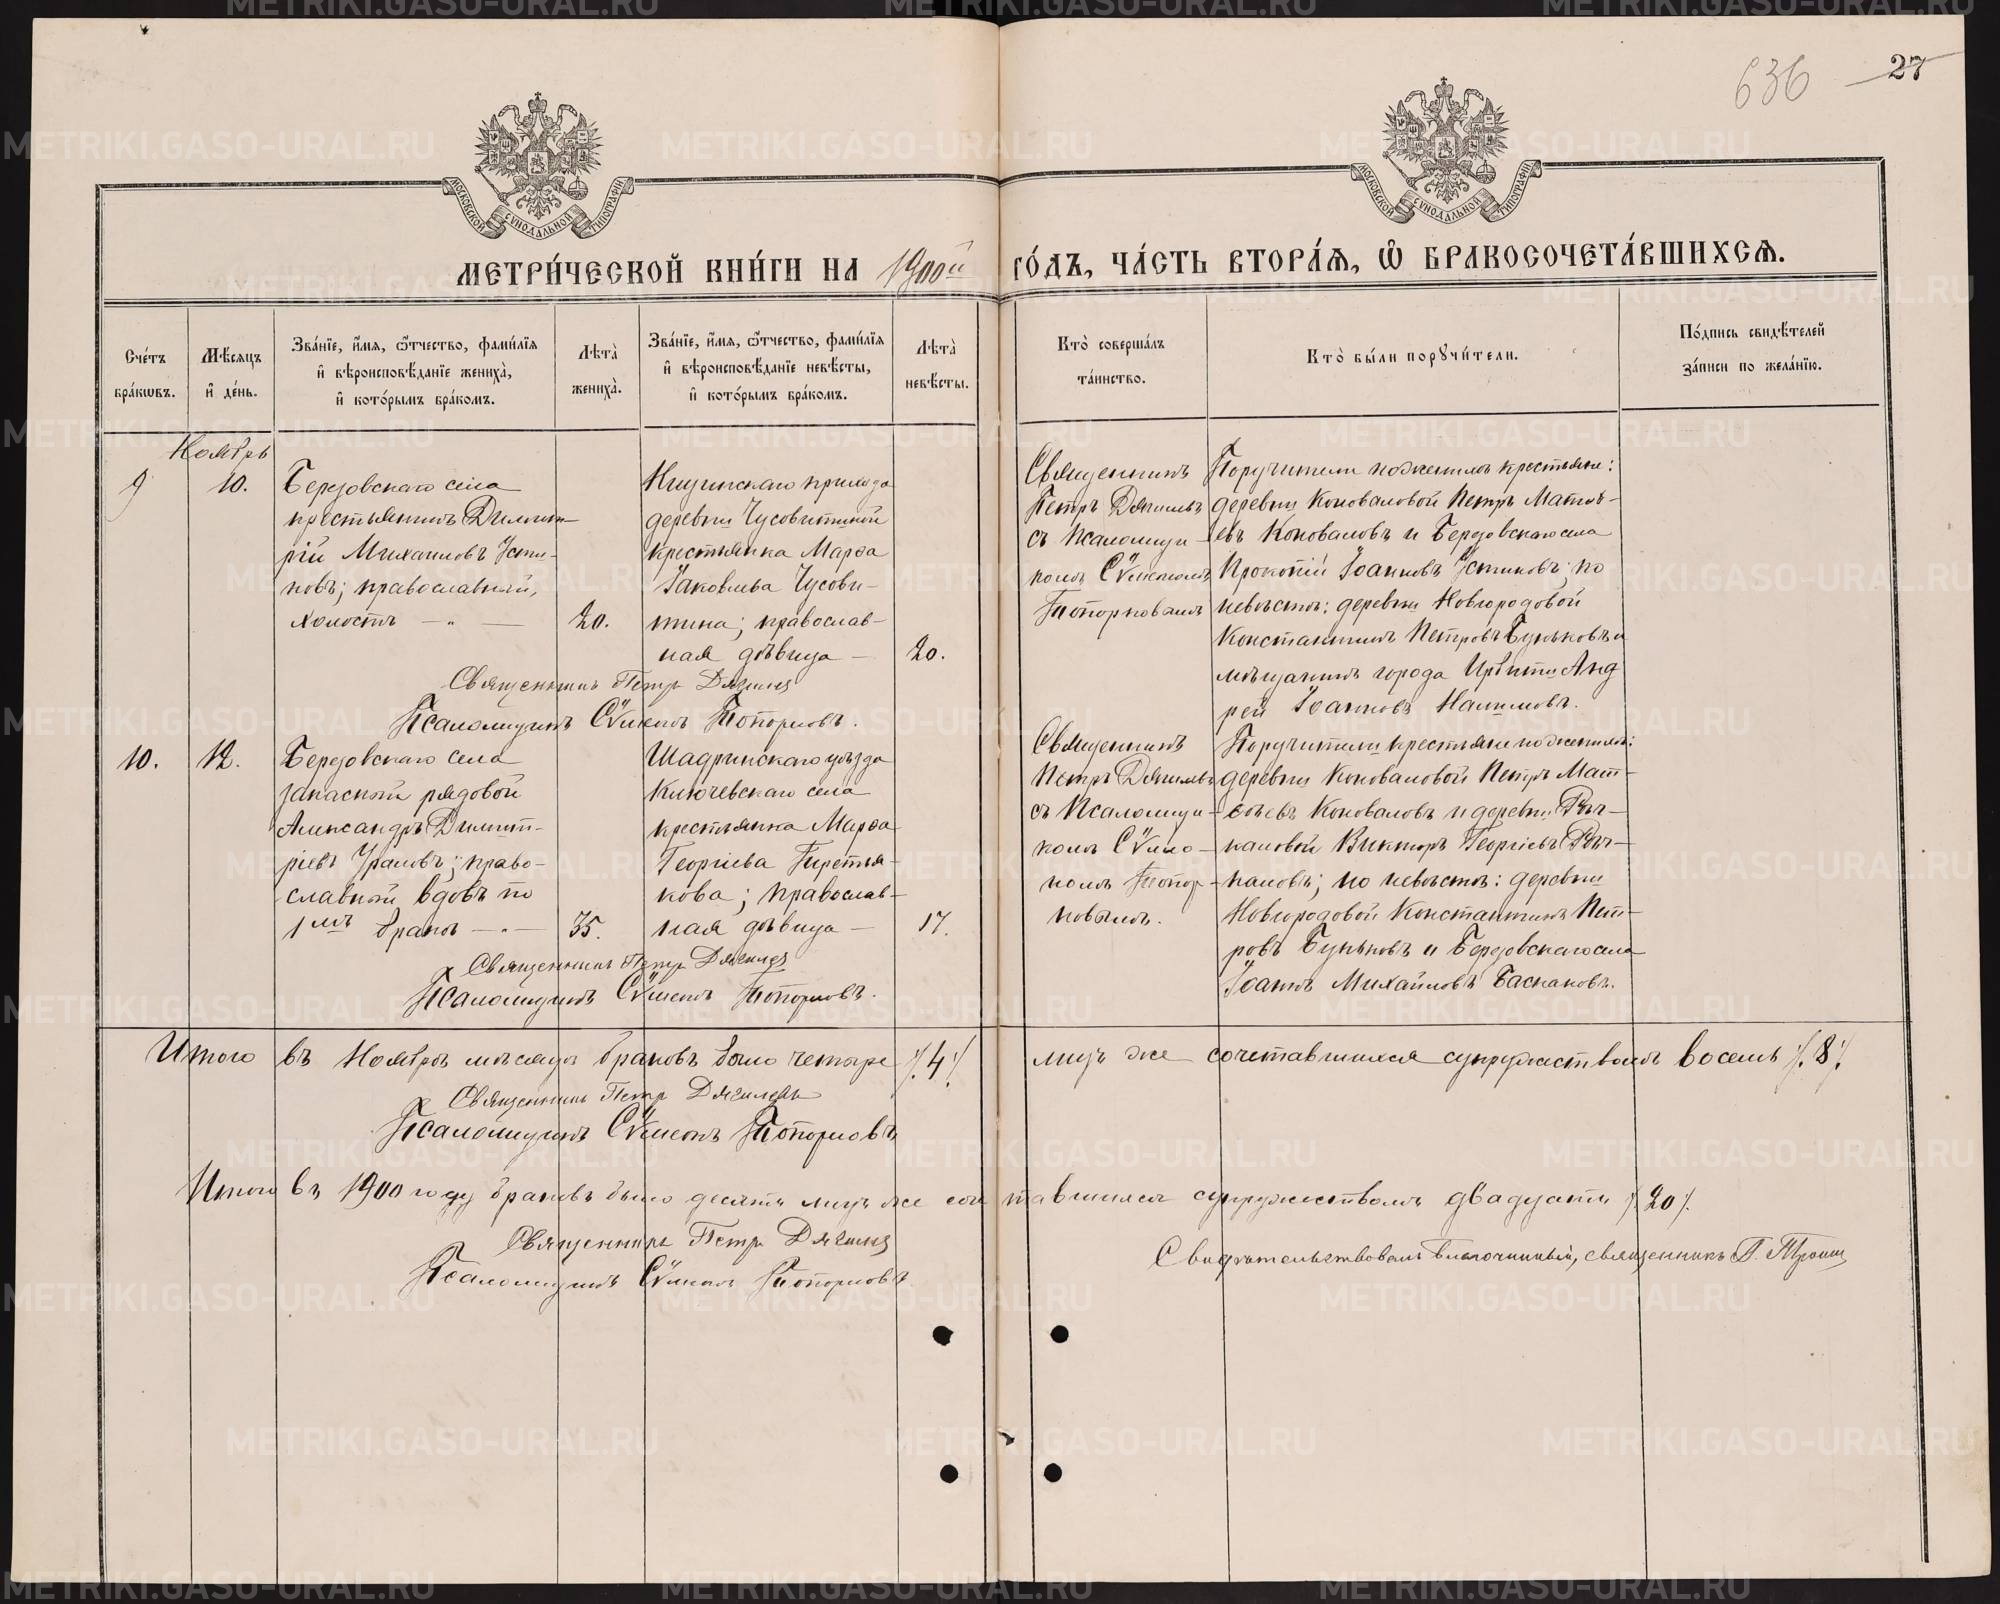 636 27
МОСКОВСКОЙ СѴНОДАЛЬНОЙ ТИПОГРАФІИ
МОСКОВСКОЙ СѴНОДАЛЬНОЙ ТИПОГРАФІИ
МЕТРИ́ЧЕСКОЙ КНИ́ГИ НА 1900й ГО́ДЪ, ЧА́СТЬ ВТОРА́Я, Ѡ БРАКОСОЧЕТА́ВШИХСЯ.
Сче́тъ бра́кѡвъ.
Мѣ́сяцъ и де́нь.
Зва́нїе, и́мя, ѻ́тчество, фами́лїя и вѣроисповѣ́данїе жениха̀, и кото́рымъ бра́комъ.
Лѣта̀ жениха̀.
Зва́нїе, и́мя, ѻ́тчество, фами́лїя и вѣроисповѣ́данїе невѣ́сты, и кото́рымъ бра́комъ.
Лѣта̀ невѣ́сты.
Кто̀ соверша́лъ та́инство.
Кто̀ бы́ли порꙋчи́тели.
По́дпись свидѣ́телей за́писи по жела́нїю.
Ноябрь
9 10.
Березовскаго села
крестьянинъ Димит-
рій Михаиловъ Усти-
новъ; православный,
холостъ — „ —
20.
Ницинскаго прихода
деревни Чусовитиной
крестьянка Марѳа
Іаковлева Чусови-
тина; православ-
ная дѣвица —
20.
Священникъ
Петръ Дягилевъ
съ Псаломщи-
комъ Сѵмеономъ
Топорковымъ
Поручители по женихѣ крестьяне:
деревни Коноваловой Петръ Матѳѣ-
евъ Коноваловъ и Березовскаго села
Прокопій Іоанновъ Устиновъ; по
невѣстѣ: деревни Новгородовой
Константинъ Петровъ Буньковъ и
мѣщанинъ города Ирбити Анд
рей Іоанновъ Налимовъ.
Священникъ Петръ Дягилевъ
Псаломщикъ Сѵмеонъ Топорковъ.
10. 12.
Березовскаго села
запасный рядовой
Александръ Димит-
ріевъ Ураловъ; право-
славный вдовъ по
1мъ бракѣ — „ —
35.
Шадринскаго уѣзда
Ключевскаго села
крестьянка Марѳа
Георгіева Третья-
кова; православ-
ная дѣвица —
17.
Священникъ
Петръ Дягилевъ
съ Псаломщи-
комъ Сѵмео-
номъ Топор-
ковымъ.
Поручители крестьяне по женихѣ:
деревни Коноваловой Петръ Мат-
ѳѣевъ Коноваловъ и деревни Рѣч-
каловой Викторъ Георгіевъ Рѣч-
каловъ; по невѣстѣ: деревни
Новгородовой Константинъ Пет-
ровъ Буньковъ и Березовскаго села
Іоаннъ Михайловъ Баскаковъ.
Священникъ Петръ Дягилевъ
Псаломщикъ Сѵмеонъ Топорковъ.
Итого въ Ноябрѣ мѣсяцѣ браковъ было четыре /.4./ лицъ же сочетавшихся супружествомъ восемь /.8./
Священникъ Петръ Дягилевъ
Псаломщикъ Сѵмеонъ Топорковъ
Итого въ 1900 году браковъ было десять лицъ же сочетавшихся супружествомъ двадцать /.20./
Священникъ Петръ Дягилевъ
Псаломщикъ Сѵмеонъ Топорковъ
Свидѣтельствовалъ благочинный, священникъ
METRIKI.GASO-URAL.RU